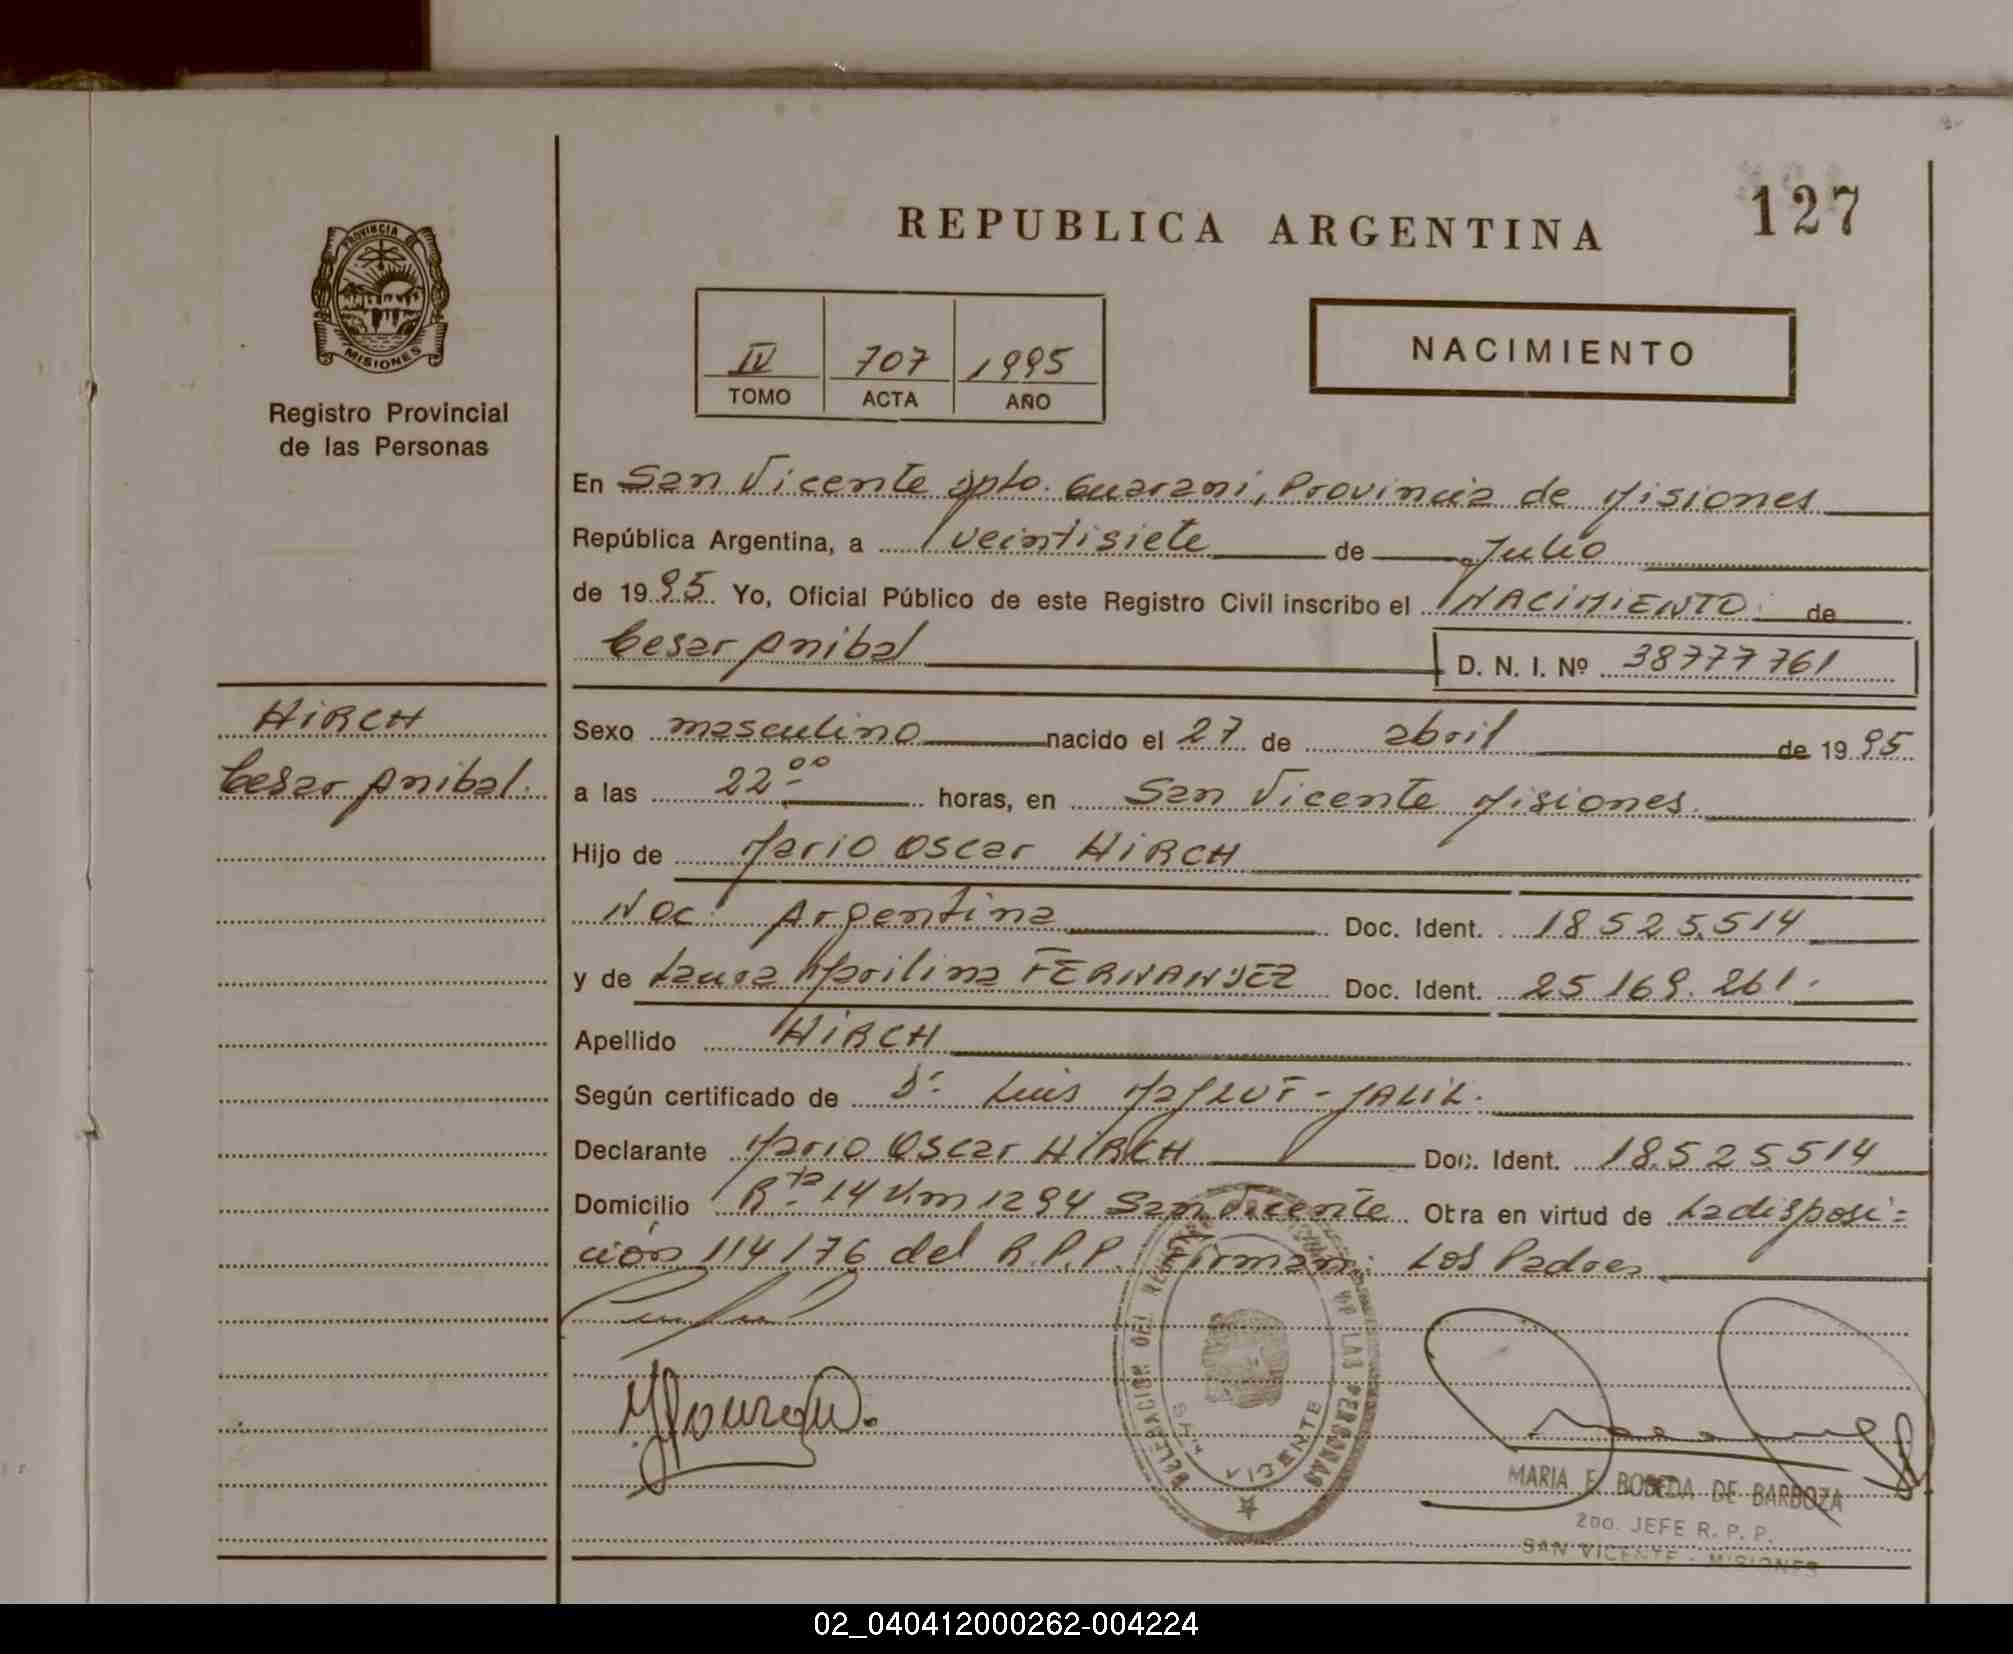 127
REPUBLICA ARGENTINA
PROVINCIA DE
MISIONES
Registro Provincial
de las Personas
IV 707 1995
TOMO ACTA AÑO
NACIMIENTO
En San Vicente Dpto. Guarani, Provincia de Misiones
República Argentina, a veintisiete de Julio
de 1995 Yo, Oficial Público de este Registro Civil inscribo el NACIMIENTO de
Cesar Anibal D. N. I. Nº 38777761
HiRCH
Cesar Anibal.
Sexo masculino nacido el 27 de abril de 1995
a las 22 00 horas, en San Vicente Misiones.
Hijo de Mario Oscar HiRCH
Nac: Argentina Doc. Ident. 18525.514
y de Laura Marilina FERNANDEZ Doc. Ident. 25169.261.
Apellido HiRCH
Según certificado de Dr Luis
Declarante Mario Oscar HiRCH Doc. Ident. 18.525514
Domicilio Rta 14 Km 1294 San Vicente Otra en virtud de La disposi=
ción 114/76 del R.P.P. Firman: Los Padres
DELEGACION DEL REGISTRO DE LAS PERSONAS
SAN VICENTE
MARIA E. BOBEDA DE BARBOZA
2DO. JEFE R. P. P.
SAN VICENTE - MISIONES
02_040412000262-004224